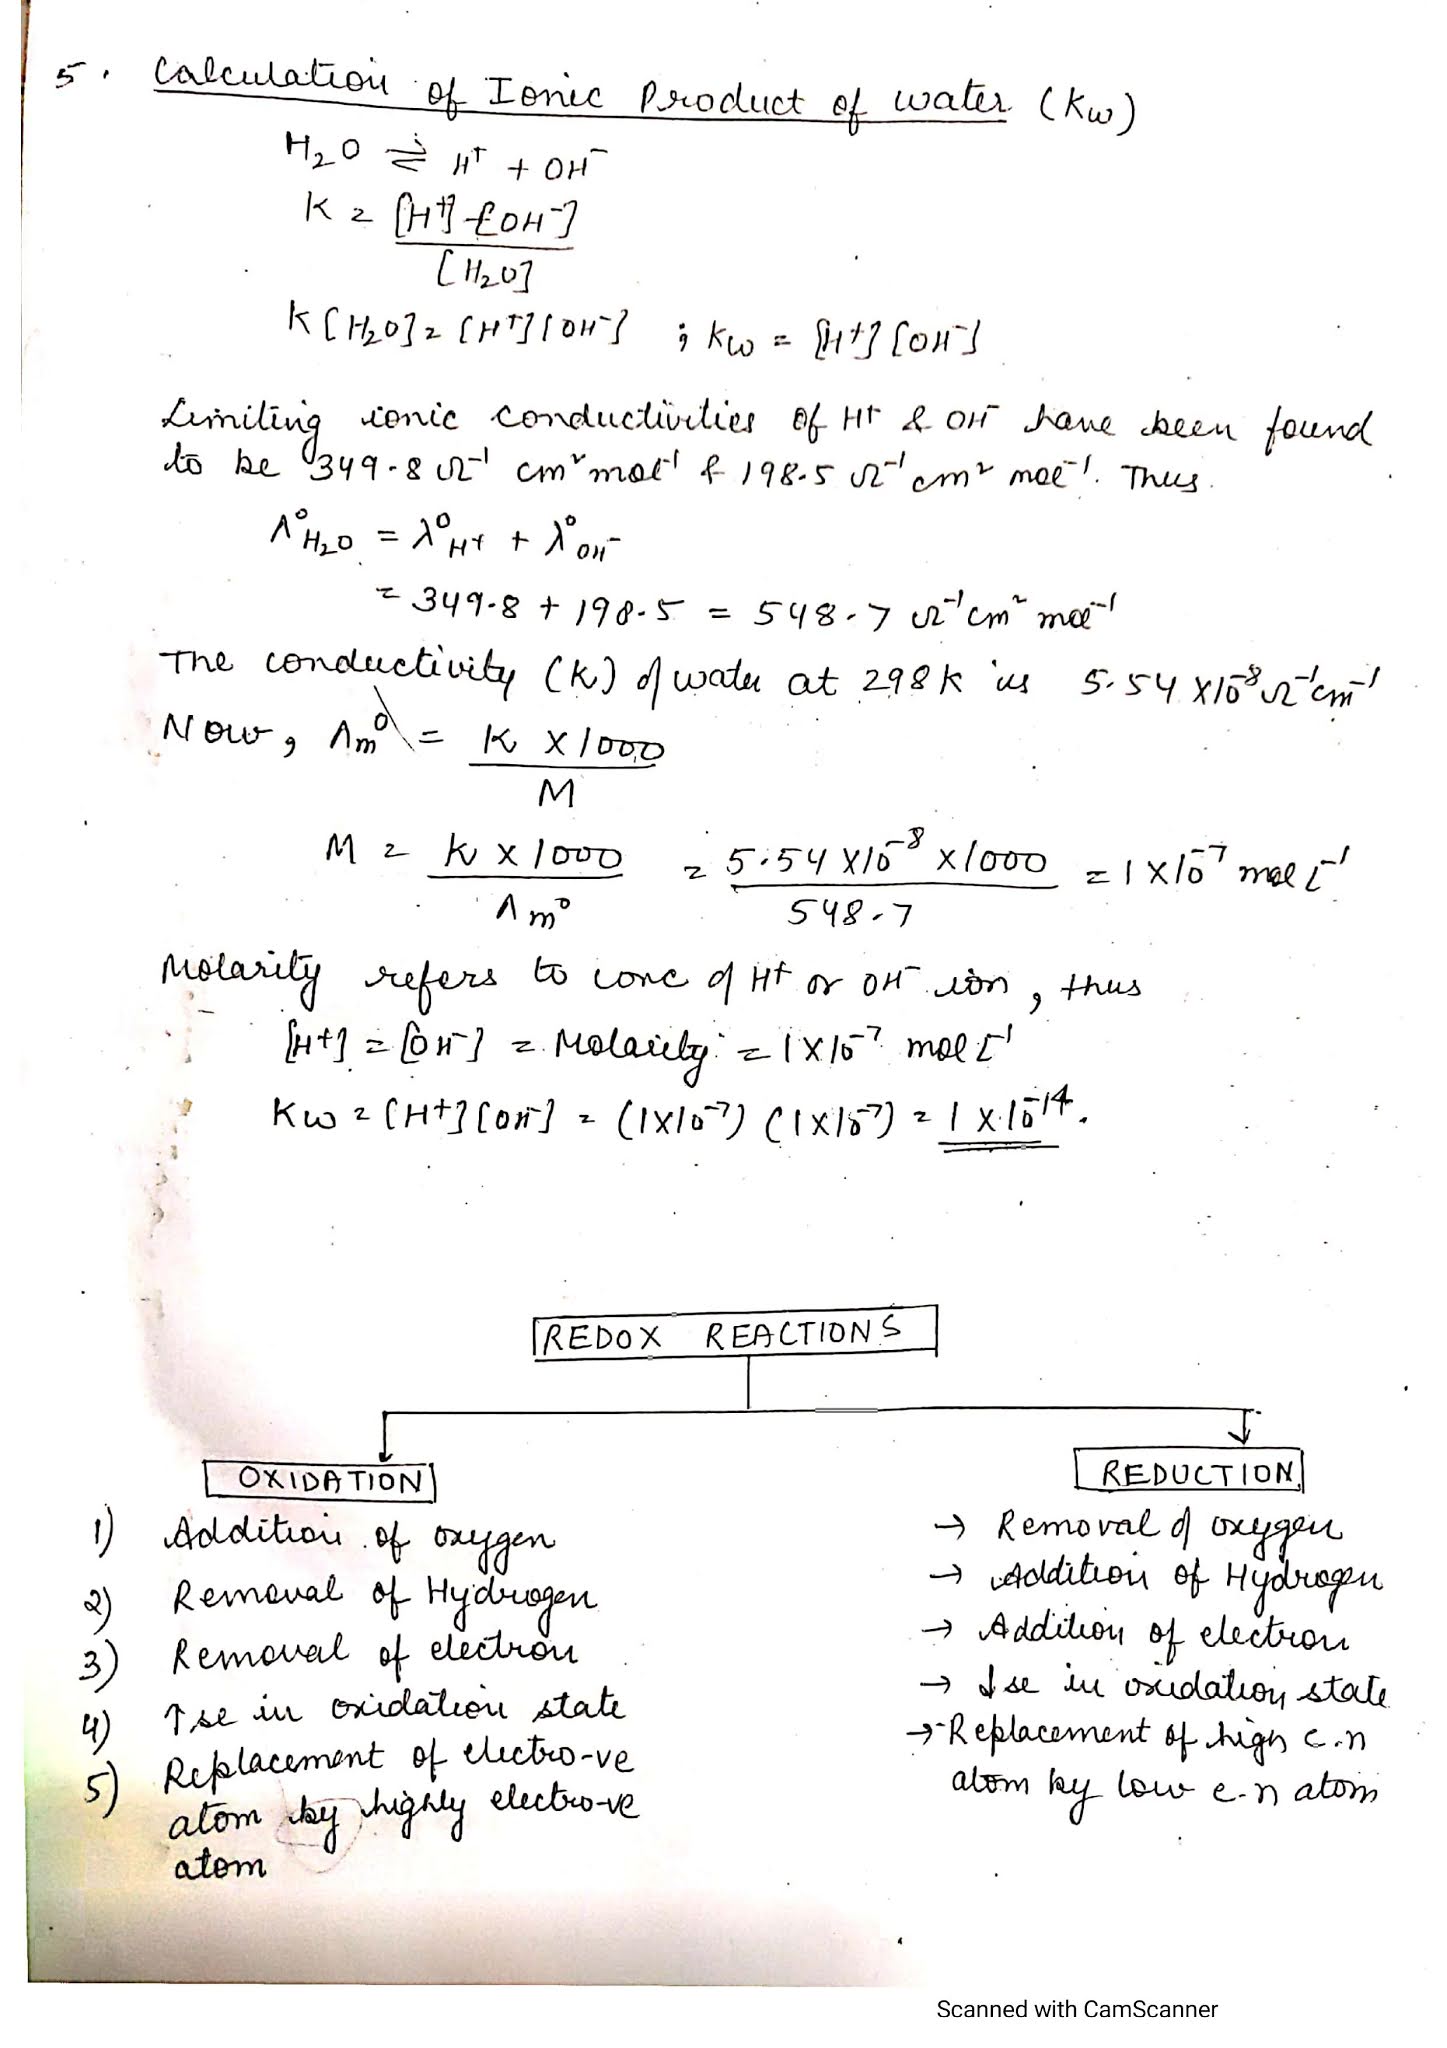 5. Calculation of Ionic Product of water (Kw)
H₂O ⇌ H⁺ + OH⁻
K = [H⁺] [OH⁻]
[H₂O]
K[H₂O] = [H⁺][OH⁻] ; Kw = [H⁺][OH⁻]
Limiting ionic conductivities of H⁺ & OH⁻ have been found
to be 349.8 Ω⁻¹ cm² mol⁻¹ & 198.5 Ω⁻¹ cm² mol⁻¹. Thus.
Λ°H₂O = λ°H⁺ + λ°OH⁻
= 349.8 + 198.5 = 548.7 Ω⁻¹ cm² mol⁻¹
The conductivity (K) of water at 298K is 5.54 X10⁻⁸ Ω⁻¹ cm⁻¹
Now, Λm° = K X 1000
M
M = K X 1000 = 5.54 X10⁻⁸ X1000 = 1 X10⁻⁷ mol L⁻¹
Λm° 548.7
Molarity refers to conc of H⁺ or OH⁻ ion, thus
[H⁺] = [OH⁻] = Molarity = 1X10⁻⁷ mol L⁻¹
Kw = [H⁺][OH⁻] = (1X10⁻⁷) (1X10⁻⁷) = 1 X 10⁻¹⁴.
REDOX REACTIONS
OXIDATION
1) Addition of oxygen
2) Removal of Hydrogen
3) Removal of electron
4) ↑se in oxidation state
5) Replacement of electro-ve
atom by highly electro-ve
atom
REDUCTION
→ Removal of oxygen
→ Addition of Hydrogen
→ Addition of electron
→ ↓se in oxidation state
→ Replacement of high e.n
atom by low e.n atom
Scanned with CamScanner